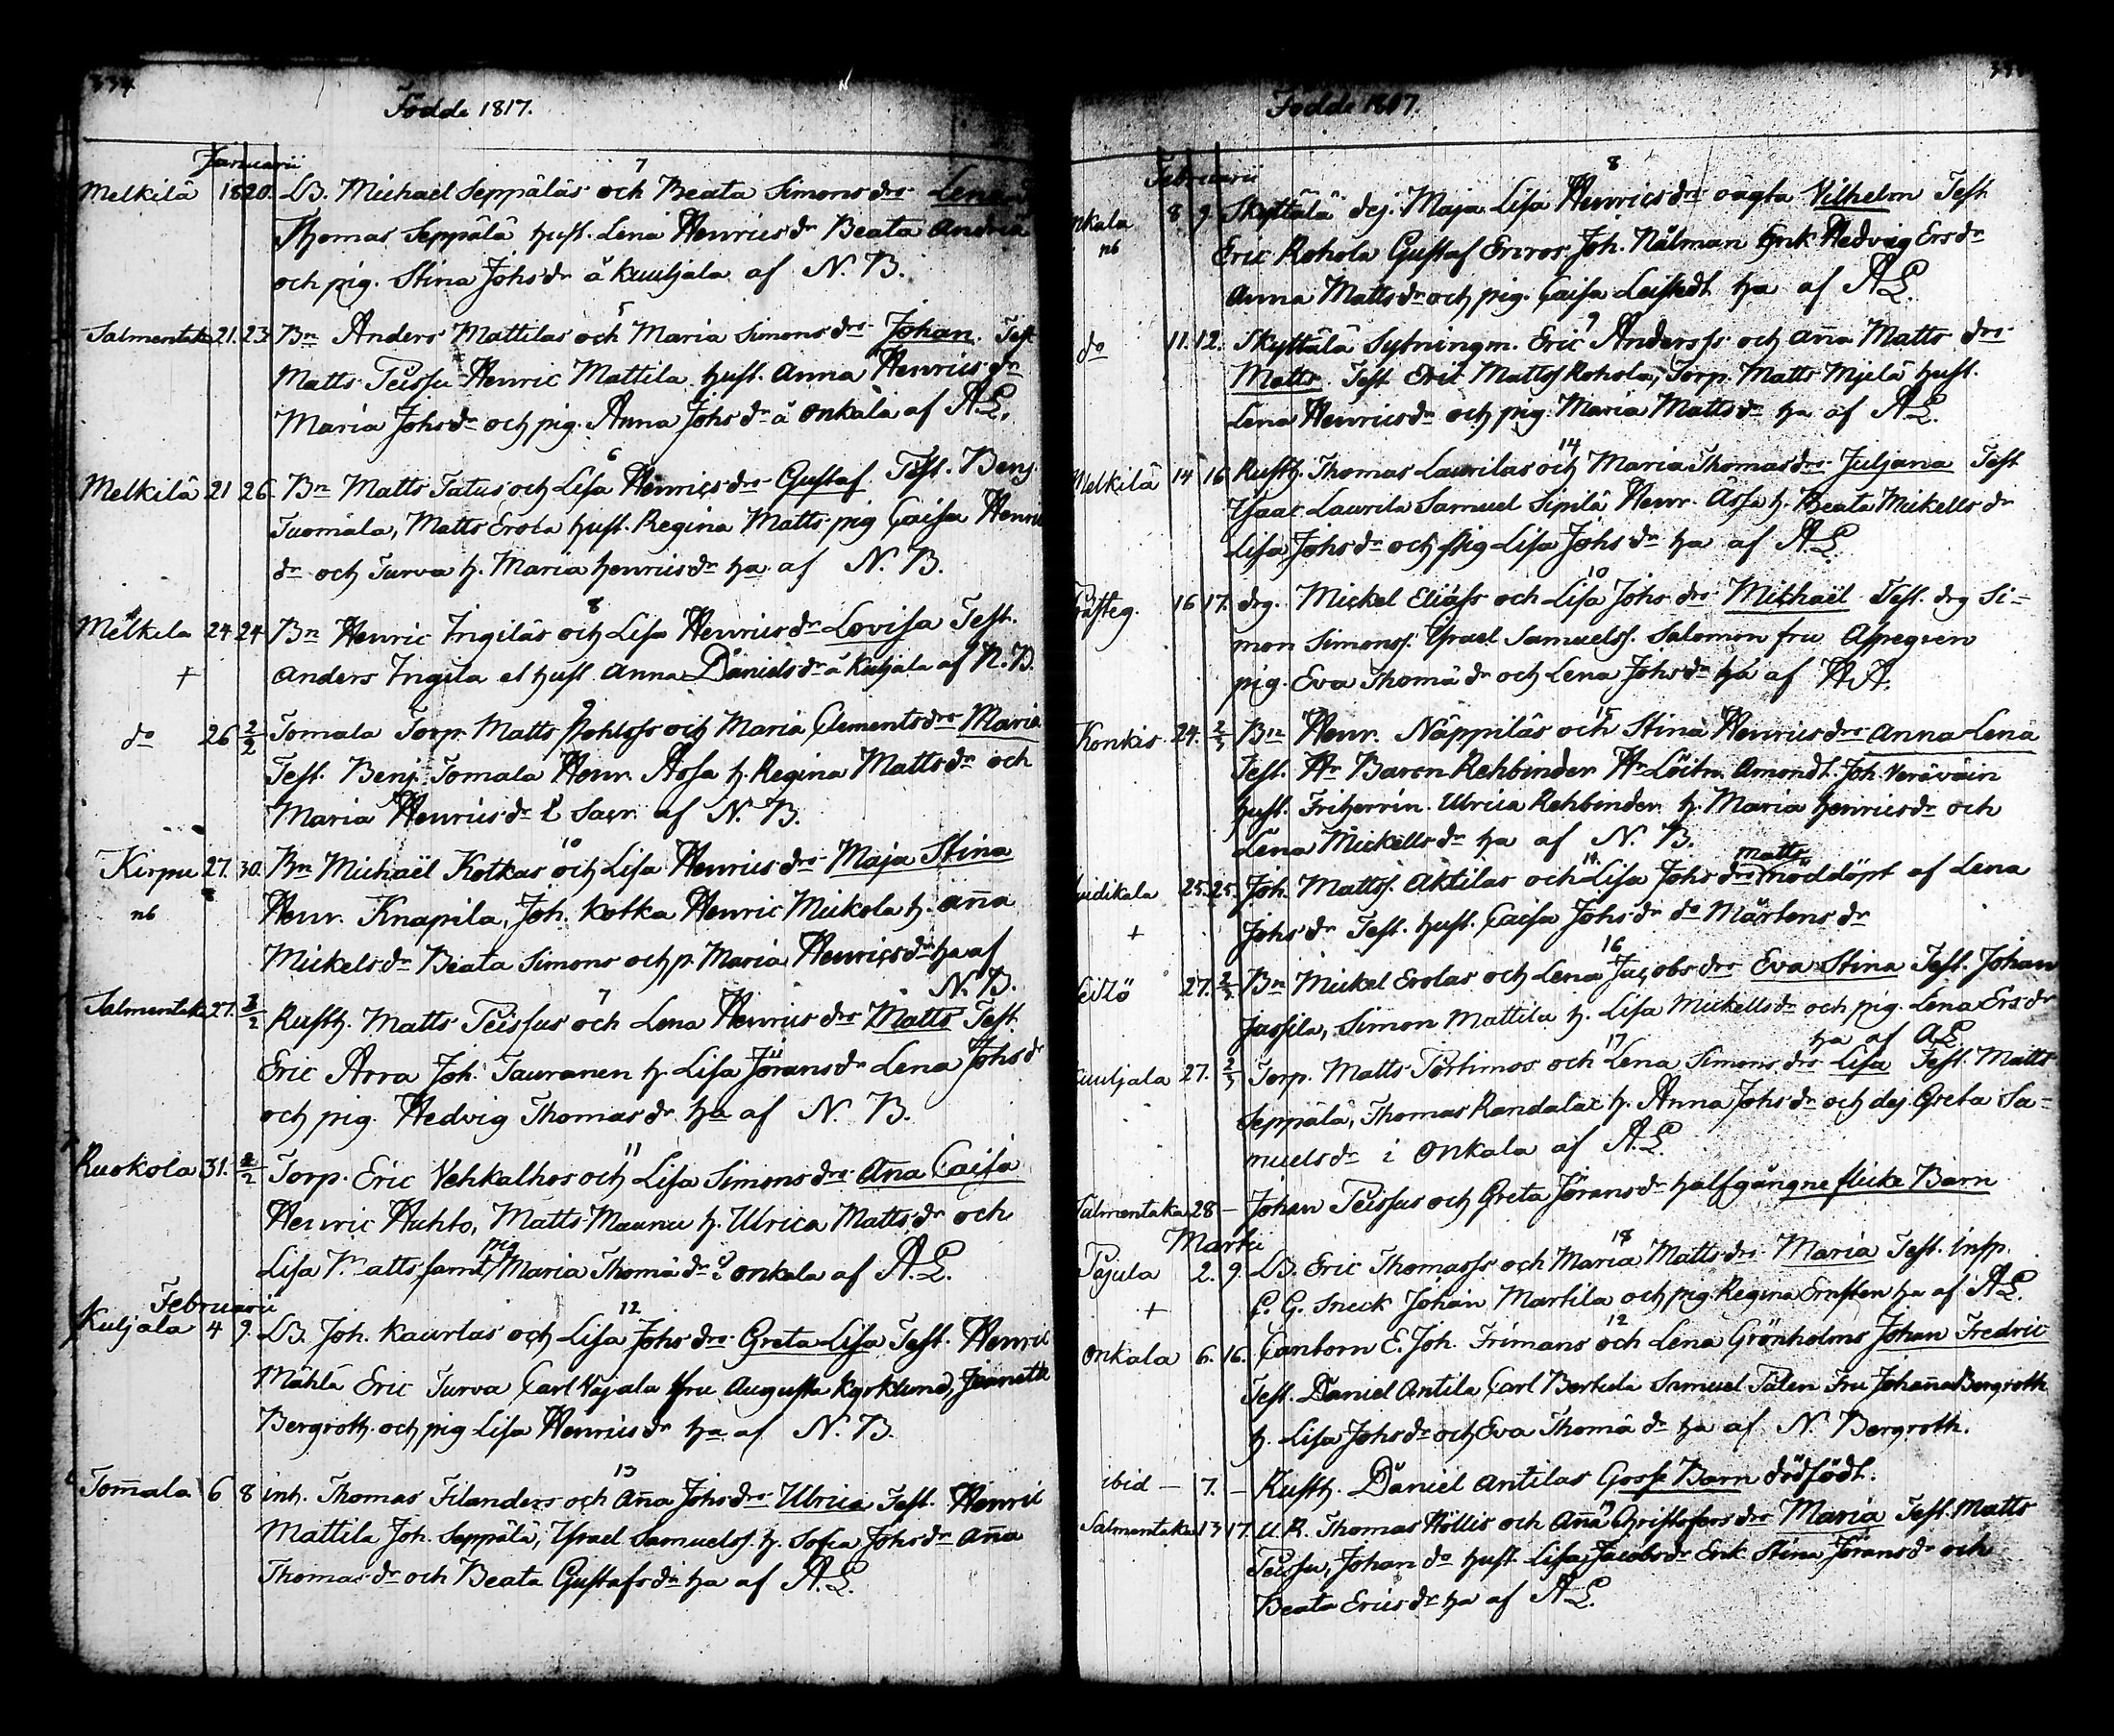 334
Födde 1817.
Januarii
7
Melkilä 18 20. LB. Michael Seppäläs och Beata Simons drs Lena
Thomas Seppälä hust. Lena Henricsdr Beata Andrä
och pig. Stina Johsdr à Kuuljala af N. B.
5
Salmentaka 21. 23. Bn Anders Mattilas och Maria Simons drs Johan. Test
Matts Teissu Henric Mattila hust. Anna Henrics dr
Maria Johsdr och pig. Anna Johsdr à Onkala af A.L.
6
Melkilä 21 26. Bn Matts Tatus och Lisa Henrics drs Gustaf. Test. Benj.
Tuomala, Matts Erola hust. Regina Matts pig Caisa Henric
dr och Turva h. Maria Henricsdr ha af N. B.
8
Melkila 24 24 Bn Henric Ingilas och Lisa Henricsdr Lovisa Test.
+ Anders Ingila et hust Anna Danielsdr à Kuljala af N. B.
9
do 26 2/2 Tomala Torp. Matts Pohlsss och Maria Clementsdrs Maria
Test. Benj. Tomala Henr. Assa h. Regina Mattsdr och
Maria Henricsdr i Savr. af N. B.
10
Kirpu 27. 30. Bn Michaël Kotkas och Lisa Henrics drs Maja Stina
nb Henr. Knapila, Joh. Kotka Henric Mickola h. Aña
Mickelsdr Beata Simons och p. Maria Henricsdr ha af
N. B.
7
Salmentaka 27. 2/2 Rusth. Matts Teissus och Lena Henrics drs Matts Test.
Eric Arra Joh. Tauranen h. Lisa Jöransdr Lena Johsdr
och pig. Hedvig Thomasdr ha af N. B.
11
Ruokola 31. 2/2 Torp. Eric Vehkalhos och Lisa Simonsdrs Aña Caisa
Henric Huhto, Matts Maunu h. Ulrica Mattsdr och
Lisa Matts samt pig Maria Thomä dr i Onkala af A.L.
Februarii
12
Kuljala 4 9. LB. Joh. Kaurlas och Lisa Johs drs Greta Lisa Test. Henric
Mähla Eric Turva Carl Vajala fru Augusta Kyrklund, Jeanette
Bergroth och pig Lisa Henricsdr ha af N. B.
13
Tom̄ala 6 8 inh. Thomas Filanders och Aña Johs drs Ulrica Test. Henric
Mattila Joh. Seppälä, Israel Samuelss. h. Sofia Johsdr Aña
Thomas dr och Beata Gustafsdr ha af A.L.
Födde 1817.
Februarii
8
nkala 8 9. Skyttälä dej. Maja Lisa Henricsdrs oägta Vilhelm Test
nb Eric Rohola Gustaf Joh. Nålman Enk Hedvig Ersdr
Anna Mattsdr och pig. Caisa Leistedt ha af A L.
9
do 11. 12. Skyttälä Sytningm. Eric Anderss. och Aña Matts drs
Matts. Test. Eric Mattss Rohola, Torp. Matts Mjelä hust.
Lena Henricsdr och pig. Maria Mattsdr ha af A L.
14
Melkilä 14 16 Rusth. Thomas Laurilas och Maria Thomasdrs Juljana Test
Isaac Laurila Samuel Sipilä Henr. Assa h. Beata Mickellsdr
Lisa Johsdr och pig Lisa Johsdr ha af A L.
10
Gästeg. 16 17. drg. Mickel Eliass och Lisa Johs drs Michaël Test. drg Si=
mon Simonss. Israel Samuelss. Salomon fru Aspegren
pig. Eva Thomä dr och Lena Johsdr ha af A A.
15
Konkis 24. 2/3 Bn Henr. Näppiläs och Stina Henricsdrs Anna Lena
Test. Hr Baron Rehbinder Hr Löitn. Amondt Joh. Verävain
hust. Friherrin. Ulrica Rehbinder h. Maria Henricsdr och
Lena Mickellsdr ha af N. B.
Matts
idikala 25. 25. Joh. Mattss. Aktilas och Lisa Johs drs nöddöpt af Lena
+ Johsdr Test. hust. Caisa Johsdr do Mårtensdr
16
27. 2/3 Bn Mickel Erolas och Lena Jacobsdrs Eva Stina Test. Johan
Jussila, Simon Mattila h. Lisa Mickellsdr och pig. Lena Ersdr
ha af A L
17
Kuuljala 27. 2/3 Torp. Matts Törtimos och Lena Simons drs Lisa Test. Matts
Seppälä, Thomas Randala h. Anna Johsdr och dej Greta Sa=
muelsdr i Onkala af A.L.
Salmentaka 28 — Johan Teissus och Greta Jöransdr halfgångne flicke Barn
Martii
18
Pajula 2. 9. LB. Eric Thomass. och Maria Matts drs Maria Test. insp.
+ C. G. Sneck Johan Martila och pig. Regina Ernsten ha af A L.
12
Onkala 6. 16. Cantorn E. Joh. Frimans och Lena Grönholms Johan Fredric
Test. Daniel Antila Carl Bertula Samuel Pälen Fru Johaña Bergroth
h. Lisa Johsdr och Eva Thomä dr ha af N. Bergroth.
ibid — 7. — Rusth. Daniel Antilas Gosse Barn dödfödt.
Salmentaka 13 17. U. R. Thomas Höllis och Aña Christofers drs Maria Test. Matts
Teissu, Johan do hust. Lisa Jacobsdr Enk. Stina Jöransdr och
Beata Ericsdr ha af A L.